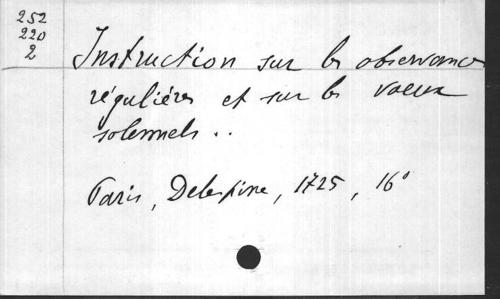 252
220
2
Instruction sur les observances
régulières et sur les vaeux
solennels ..
Paris, Delespine, 1725, 16°